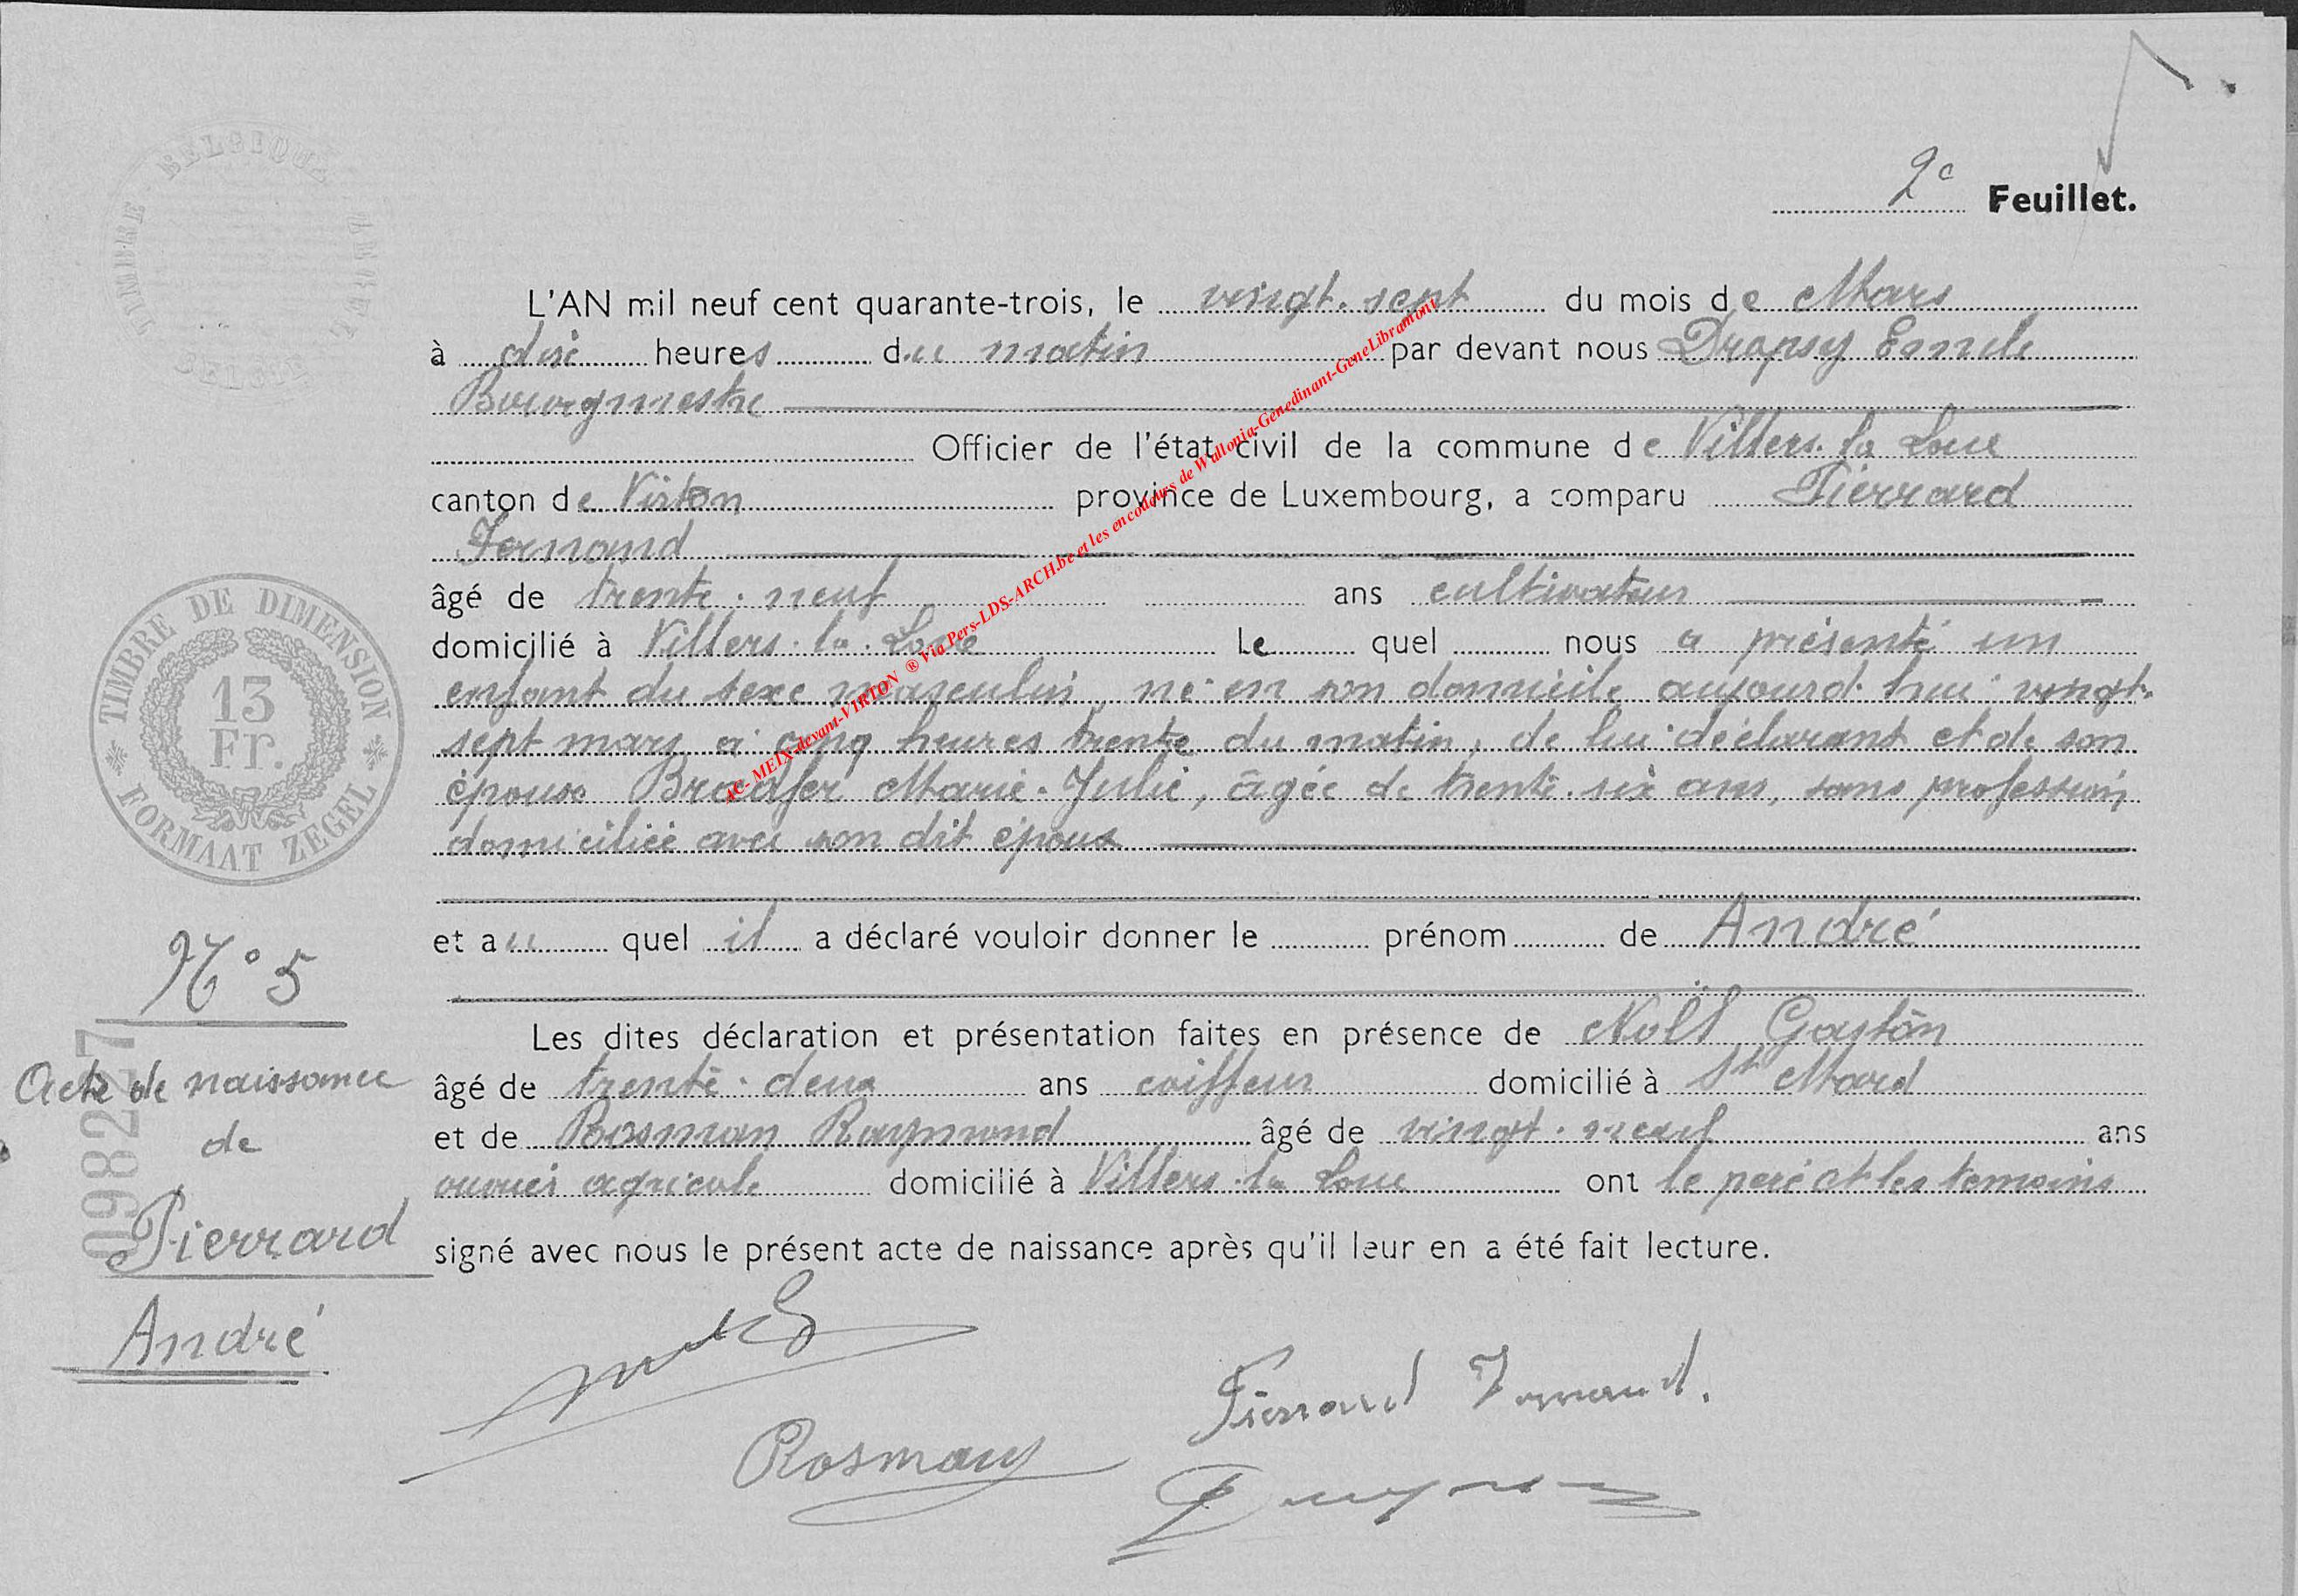 BELGIQUE
TIMBRE
BELGIË
2e Feuillet.
L'AN mil neuf cent quarante-trois, le vingt-sept du mois de Mars
à dix heures du matin par devant nous Drapsy Emile
Bourgmestre
Officier de l'état civil de la commune de Villers-la-Loue
canton de Virton province de Luxembourg, a comparu Pierrard
Fernand
âgé de trente-neuf ans cultivateur
domicilié à Villers-la-Loue Le quel nous a présenté un
enfant du sexe masculin, né en son domicile aujourd'hui vingt-
sept mars à cinq heures trente du matin, de lui déclarant et de son
épouse Bradfer Marie-Julie, âgée de trente-six ans, sans profession
domiciliée avec son dit époux
et au quel il a déclaré vouloir donner le prénom de André
Les dites déclaration et présentation faites en présence de Noël Gaston
âgé de trente-deux ans coiffeur domicilié à St Mard
et de Rosman Raymond âgé de vingt-neuf ans
ouvrier agricole domicilié à Villers-la-Loue ont le père et les témoins
signé avec nous le présent acte de naissance après qu'il leur en a été fait lecture.
TIMBRE DE DIMENSION
13
Fr.
FORMAAT ZEGEL
N° 5
098227
Acte de naissance
de
Pierrard
André
Pierrard Fernand.
Rosman
AC- MEIX-devant-VIRTON ® Via Pers-LDS-ARCH.be et les encodeurs de Wallonia-Genedinant-GeneLibramont